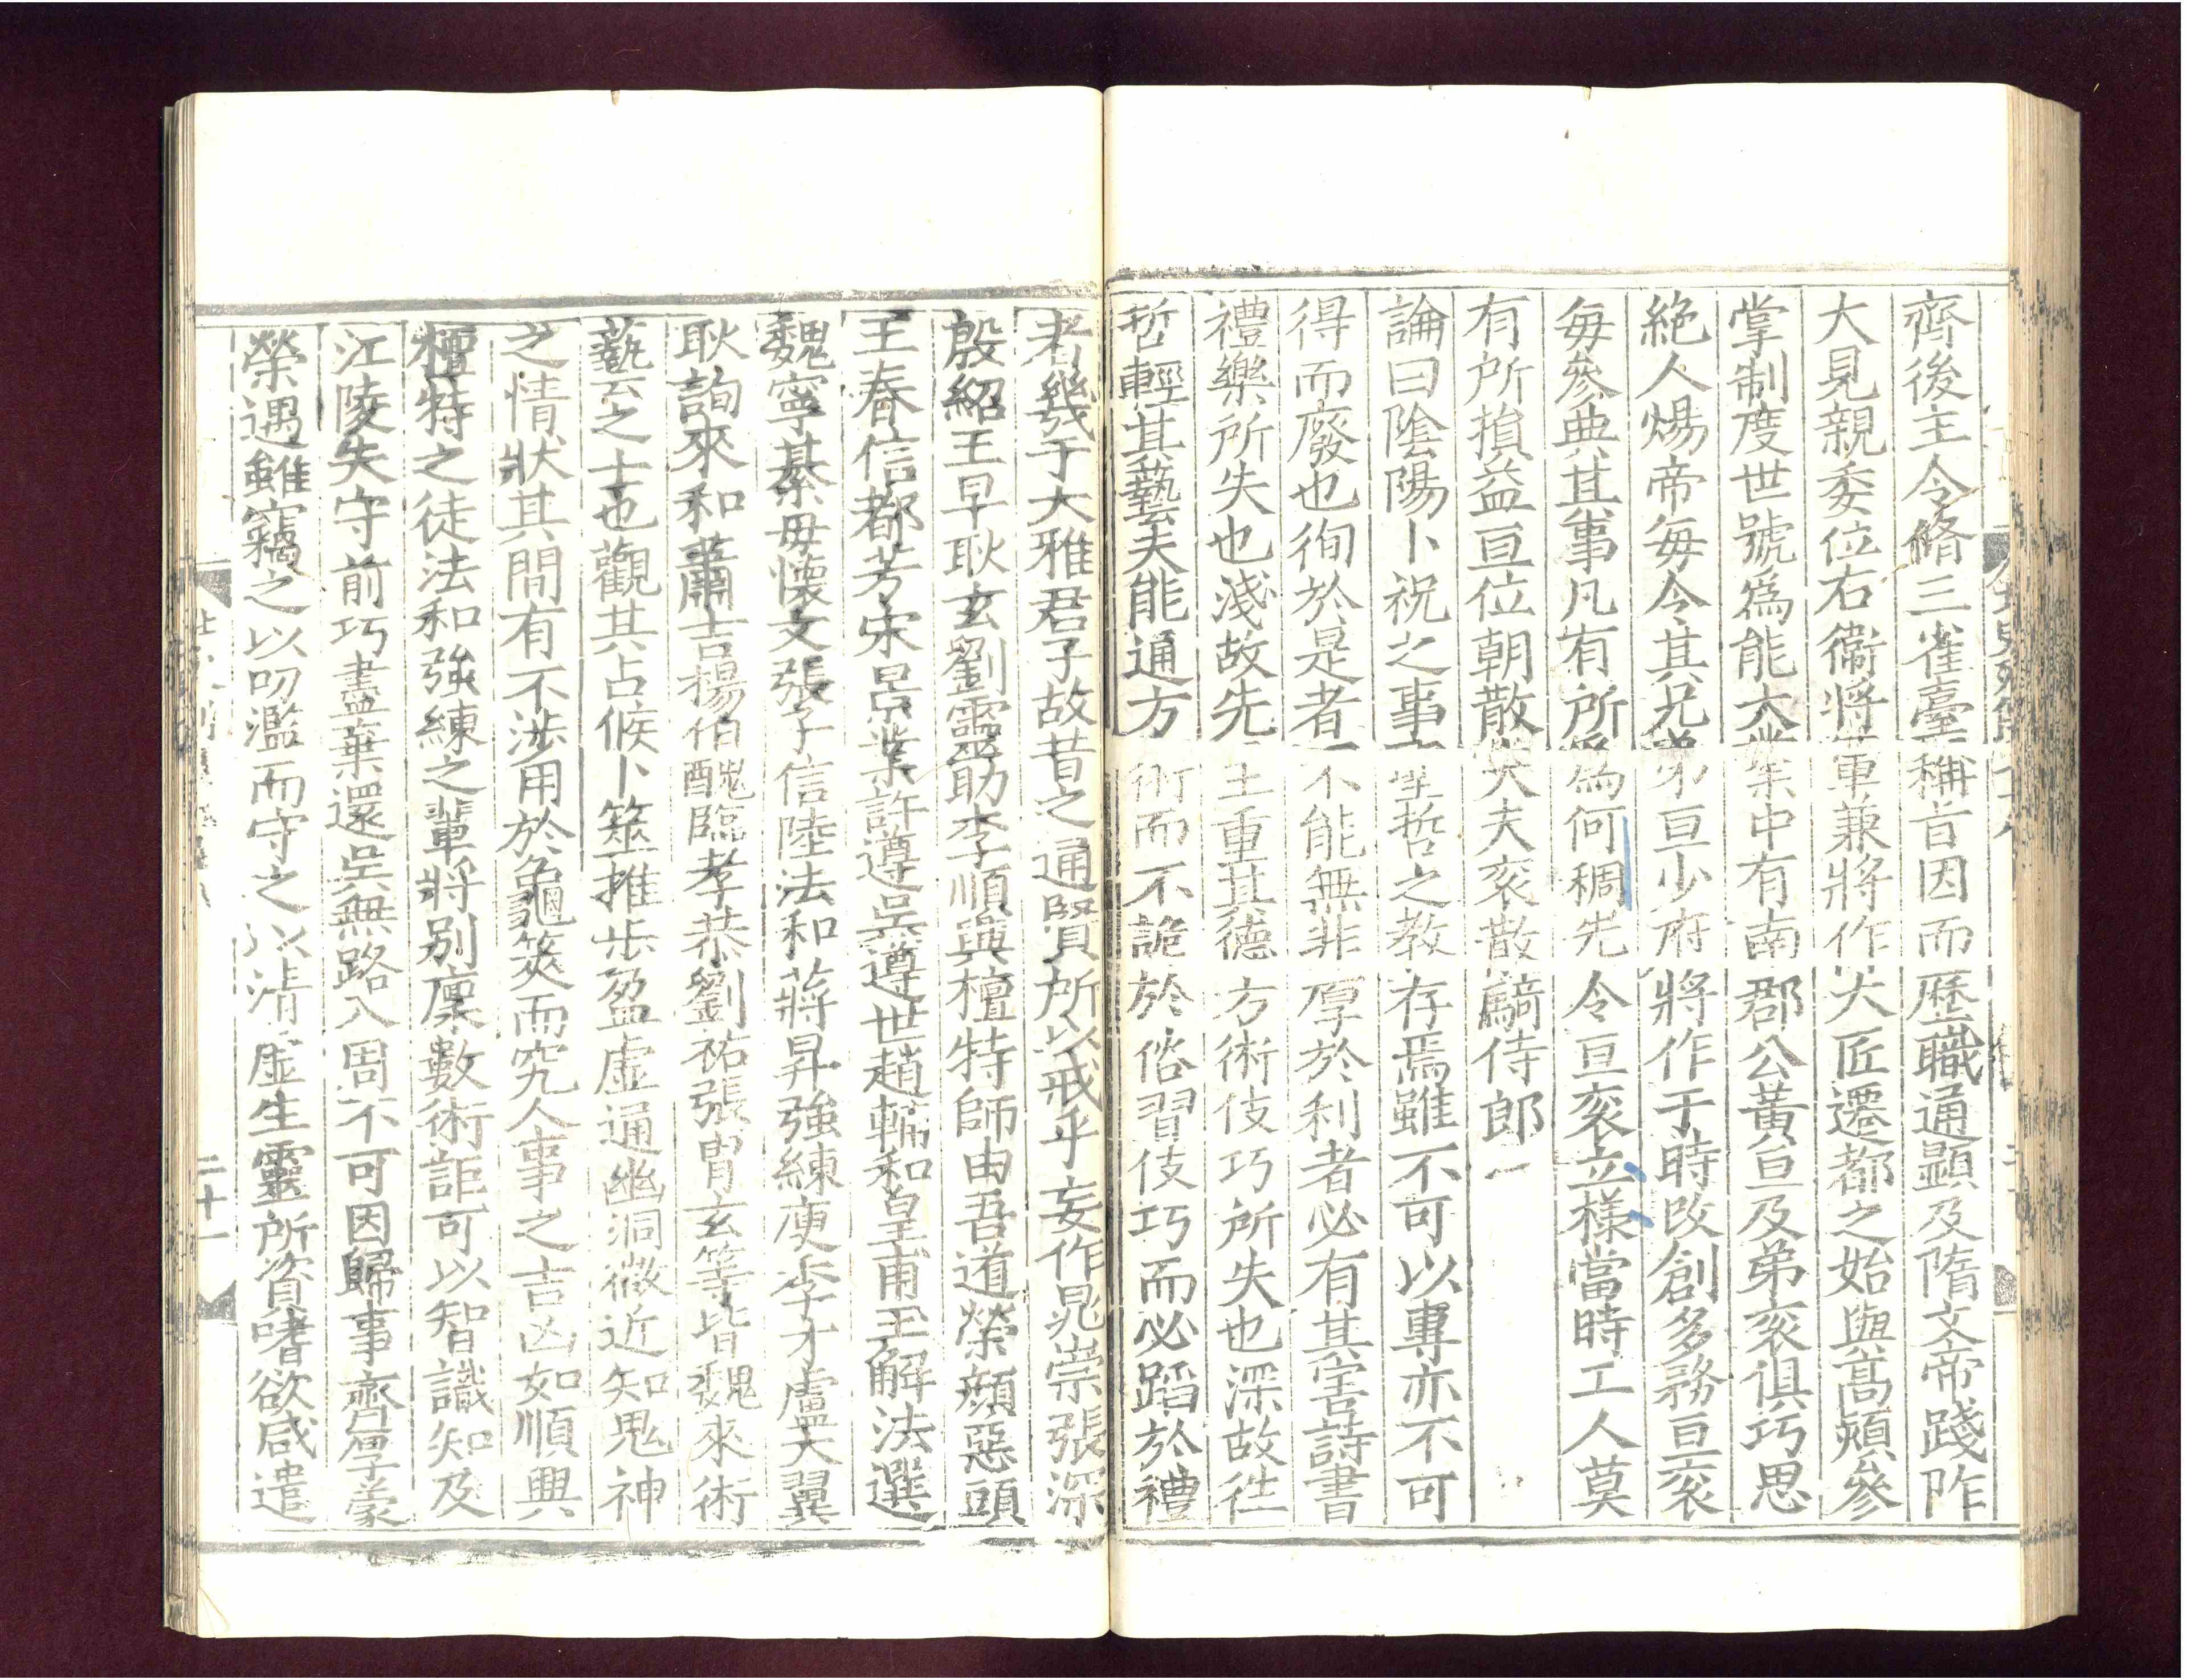 齊後主令脩三雀臺稱首因而歷職通顯及隋文帝踐阼
大見親委位右衞將軍兼將作大匠遷都之始與高熲參
掌制度世號爲能大業中有南郡公黃亘及弟袞俱巧思
絶人煬帝每令其兄弟亘少府將作于時改創多務亘袞
每參典其事凡有所爲何稠先令亘袞立樣當時工人莫
有所損益亘位朝散大夫袞散騎侍郎
論曰陰陽卜祝之事聖哲之教存焉雖不可以專亦不可
得而廢也徇於是者不能無非厚於利者必有其害詩書
禮樂所失也淺故先王重其德方術伎巧所失也深故徃
哲輕其藝夫能通方術而不詭於俗習伎巧而必蹈於禮
者幾于大雅君子故昔之通賢所以戒乎妄作晁崇張深
殷紹王早耿玄劉靈助李順興檀特師由吾道榮顏惡頭
王春信都芳宋景業許遵吳遵世趙輔和皇甫玉解法選
魏寧綦毋懷文張子信陸法和蔣昇強練庾季才盧太翼
耿詢來和蕭吉楊伯醜臨孝恭劉祐張胄玄等皆魏來術
藝之士也觀其占候卜筮推步盈虛通幽洞微近知鬼神
之情狀其間有不涉用於龜筴而究人事之吉凶如順興
檀特之徒法和強練之輩將別稟數術詎可以智識知及
江陵失守前巧盡棄還吳無路入周不可因歸事齊厚蒙
榮遇雖竊之以叨濫而守之以清虛生靈所資嗜欲咸遣
二十一